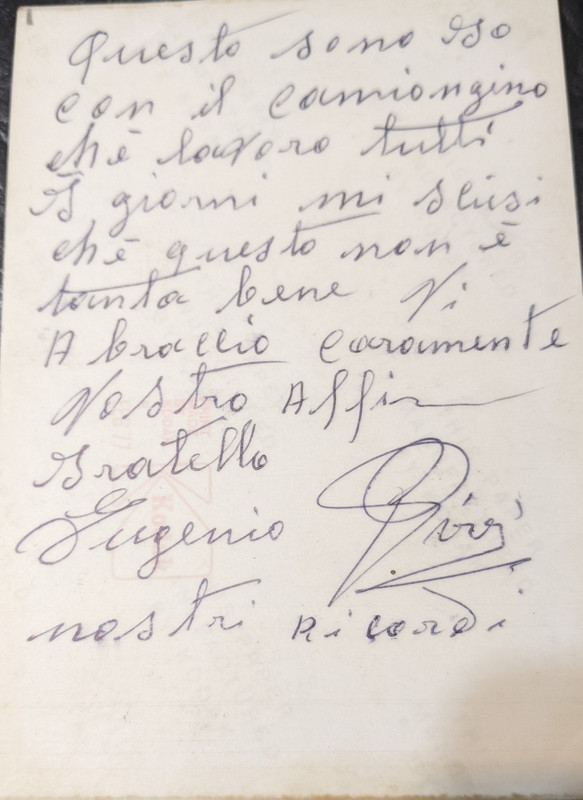 Questo sono Iso
con il camiongino
chè lavoro tutti
I giorni mi scusi
chè questo non è
tanta bene Vi
Abraccio caramente
Vostro Aff
Fratello
Eugenio
nostri Ricordi